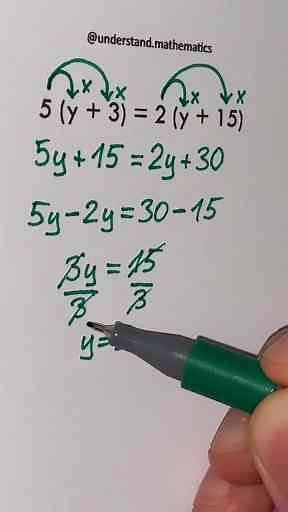 @understand.mathematics
x x x x
5 (y + 3) = 2 (y + 15)
5y + 15 = 2y + 30
5y - 2y = 30 - 15
3y = 15
3 3
y =